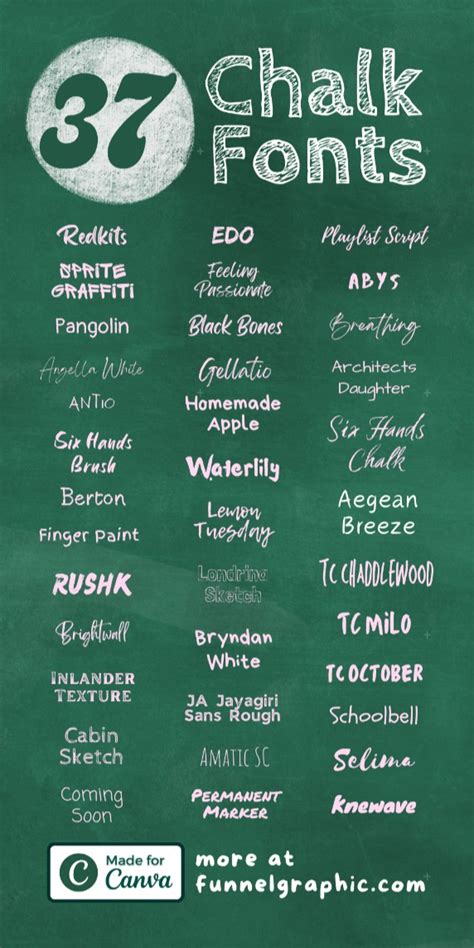 37
Chalk
Fonts
Redkits
SPRITE
GRAFFITI
Pangolin
Angella White
ANTIO
Six Hands
Brush
Berton
Finger Paint
RUSHK
Brightwall
INLANDER
TEXTURE
Cabin
Sketch
Coming
Soon
EDO
Feeling
Passionate
Black Bones
Gellatio
Homemade
Apple
Waterlily
Lemon
Tuesday
Londrina
Sketch
Bryndan
White
JA Jayagiri
Sans Rough
AMATIC SC
PERMANENT
MARKER
Playlist Script
ABYS
Breathing
Architects
Daughter
Six Hands
Chalk
Aegean
Breeze
TC CHADDLEWOOD
TC MILO
TC OCTOBER
Schoolbell
Selima
Knewave
C
Made for
Canva
more at
funnelgraphic.com